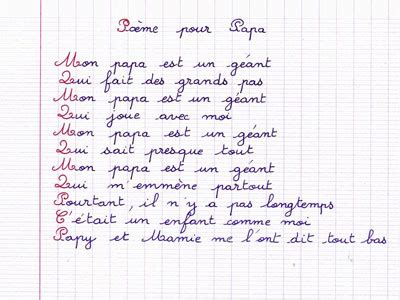 Poème pour Papa
Mon papa est un géant
Qui fait des grands pas
Mon papa est un géant
Qui joue avec moi
Mon papa est un géant
Qui sait presque tout
Mon papa est un géant
Qui m'emmène partout
Pourtant, il n'y a pas longtemps
C'était un enfant comme moi
Papy et Mamie me l'ont dit tout bas